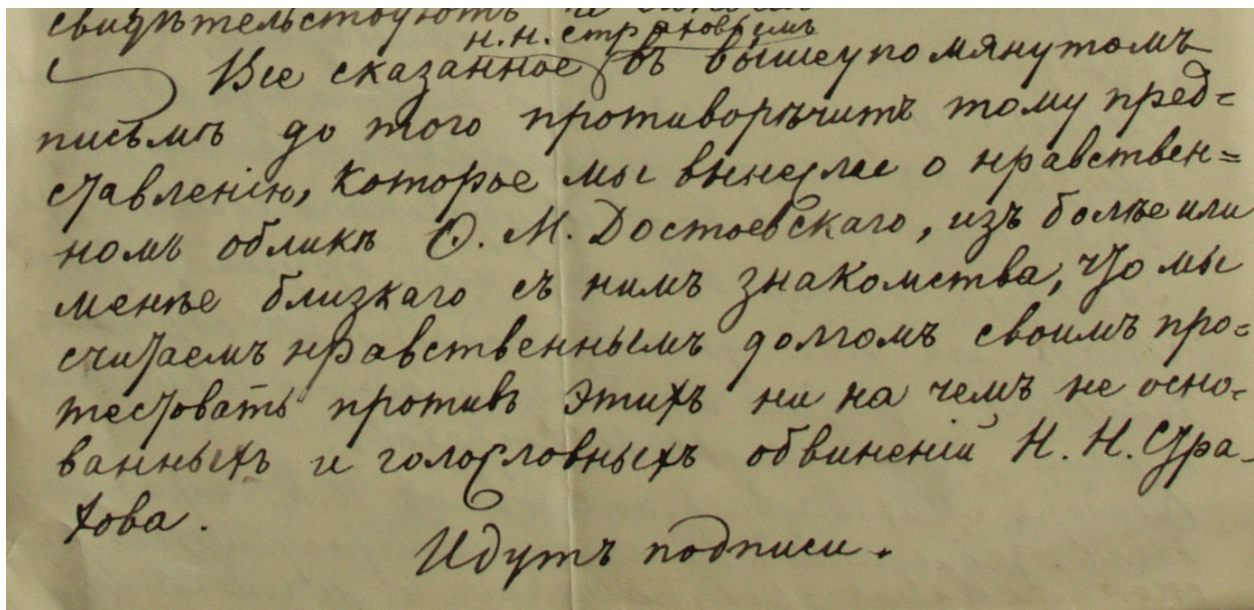 свидѣтельствуютъ и
н.н. Страховымъ
Все сказанное въ вышеупомянутомъ
письмѣ до того противорѣчитъ тому пред=
ставленію, которое мы вынесли о нравствен=
номъ обликѣ Ѳ. М. Достоевскаго, изъ болѣе или
менѣе близкаго съ нимъ знакомства, что мы
считаемъ нравственнымъ долгомъ своимъ про=
тестовать противъ этихъ ни на чемъ не осно=
ванныхъ и голословныхъ обвиненій Н. Н. Стра-
хова.
Идутъ подписи.